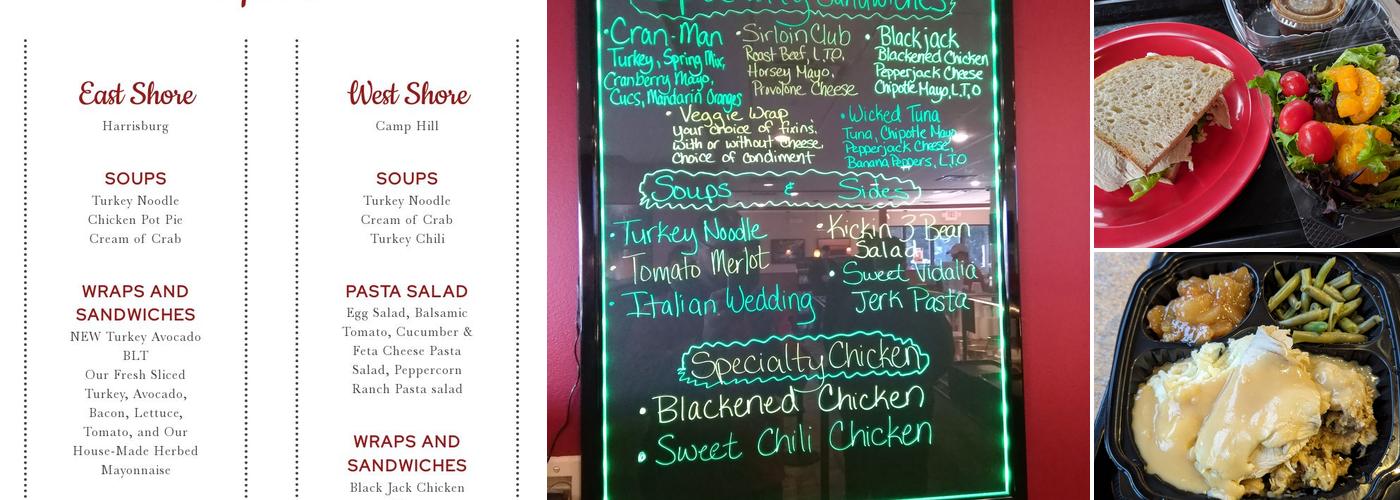 East Shore
Harrisburg
SOUPS
Turkey Noodle
Chicken Pot Pie
Cream of Crab
WRAPS AND
SANDWICHES
NEW Turkey Avocado
BLT
Our Fresh Sliced
Turkey, Avocado,
Bacon, Lettuce,
Tomato, and Our
House-Made Herbed
Mayonnaise
West Shore
Camp Hill
SOUPS
Turkey Noodle
Cream of Crab
Turkey Chili
PASTA SALAD
Egg Salad, Balsamic
Tomato, Cucumber &
Feta Cheese Pasta
Salad, Peppercorn
Ranch Pasta salad
WRAPS AND
SANDWICHES
Black Jack Chicken
Specialty Sandwiches
•Cran-Man
Turkey, Spring Mix,
Cranberry Mayo,
Cucs, Mandarin Oranges
•Sirloin Club
Roast Beef, L.T.O.
Horsey Mayo,
Provolone Cheese
• Blackjack
Blackened Chicken
Pepperjack Cheese
Chipotle Mayo, L,T,O
• Veggie Wrap
your choice of fixins.
with or without cheese,
Choice of condiment
• Wicked Tuna
Tuna, Chipotle Mayo
Pepperjack Cheese,
Banana Peppers, L.T.O
Soups & Sides
• Turkey Noodle
• Tomato Merlot
• Italian Wedding
• Kickin 3 Bean
Salad
• Sweet Vidalia
Jerk Pasta
Specialty Chicken
• Blackened Chicken
• Sweet Chili Chicken